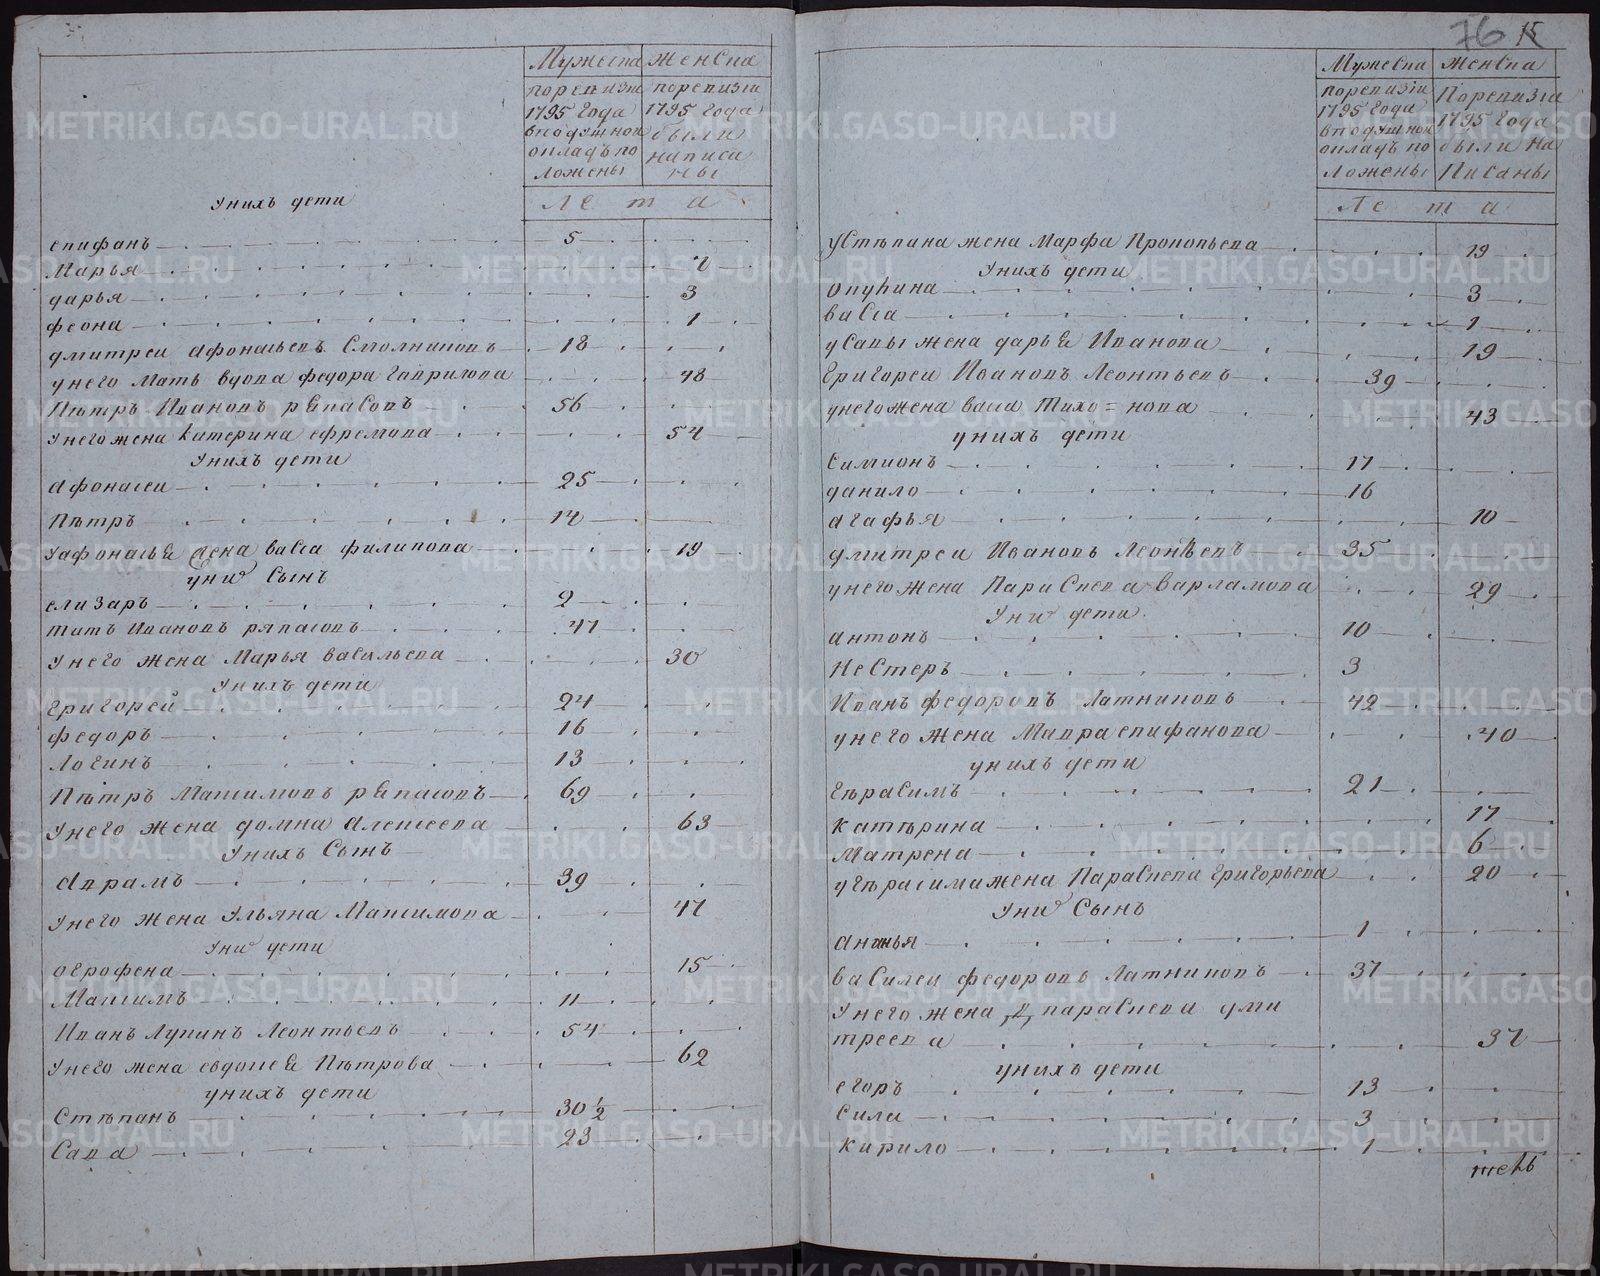 Мужеска Женска
поревизии поревизіи
1795 года 1795 года
вподушной были
окладъ по написа
ложены ны
Лета
Унихъ дети
епифанъ 5
Марья 7
дарья 3
феона 1
дмитреи афонасьевъ Смолниковъ 18
унего мать вдова федора гаврилова 48
Пѣтръ Ивановъ рѣпасовъ 56
унего жена катерина ефремова 54
Унихъ дети
афонасеи 25
Пѣтръ 14
Уафонасьѣ жена васса филипова 19
униѡ Сынъ
елизаръ 2
титъ Ивановъ ряпасовъ 47
Унего жена Марья васильева 30
Унихъ дети
григорей 24
федоръ 16
Логинъ 13
Пѣтръ Максимовъ рѣпасовъ 69
Унего жена домна Алексеева 63
Унихъ Сынъ
Аврамъ 39
Унего жена Ульяна Максимова 47
Униѡ дети
огрофена 15
Максимъ 11
Иванъ Лупинъ Леонтьевъ 54
Унего жена евдокеѣ Пѣтрова 62
унихъ дети
Стѣпанъ 30 1/2
Сава 23
76 15
Мужеска Женска
поревизіи Поревизіи
1795 года 1795 года
вподушной были на
окладъ по Писаны
ложены
Лета
уСтѣпана жена Марфа Прокопьева 19
Унихъ дети
Опуhина 3
васса 1
уСавы жена дарьѣ Иванова 19
Григореи Ивановъ Леонтьевъ 39
унего жена васса Тихо=нова 43
унихъ дети
Симионъ 17
данило 16
агафья 10
дмитреи Ивановъ Леонтьевъ 35
унего жена Параскева варламова 29
Униѡ дети
антонъ 10
Нестеръ 3
Иванъ федоровъ Латниковъ 42
унего жена Мавра епифанова 40
унихъ дети
Гѣрасимъ 21
Катѣрина 17
Матрена 6
угѣрасима жена Параскева григорьева 20
Униѡ Сынъ
Ананья 1
василеи федоровъ Латниковъ 37
Унего жена параскева дми
треева 37
унихъ дети
егоръ 13
Сила 3
Кирило 1
METRIKI.GASO-URAL.RU